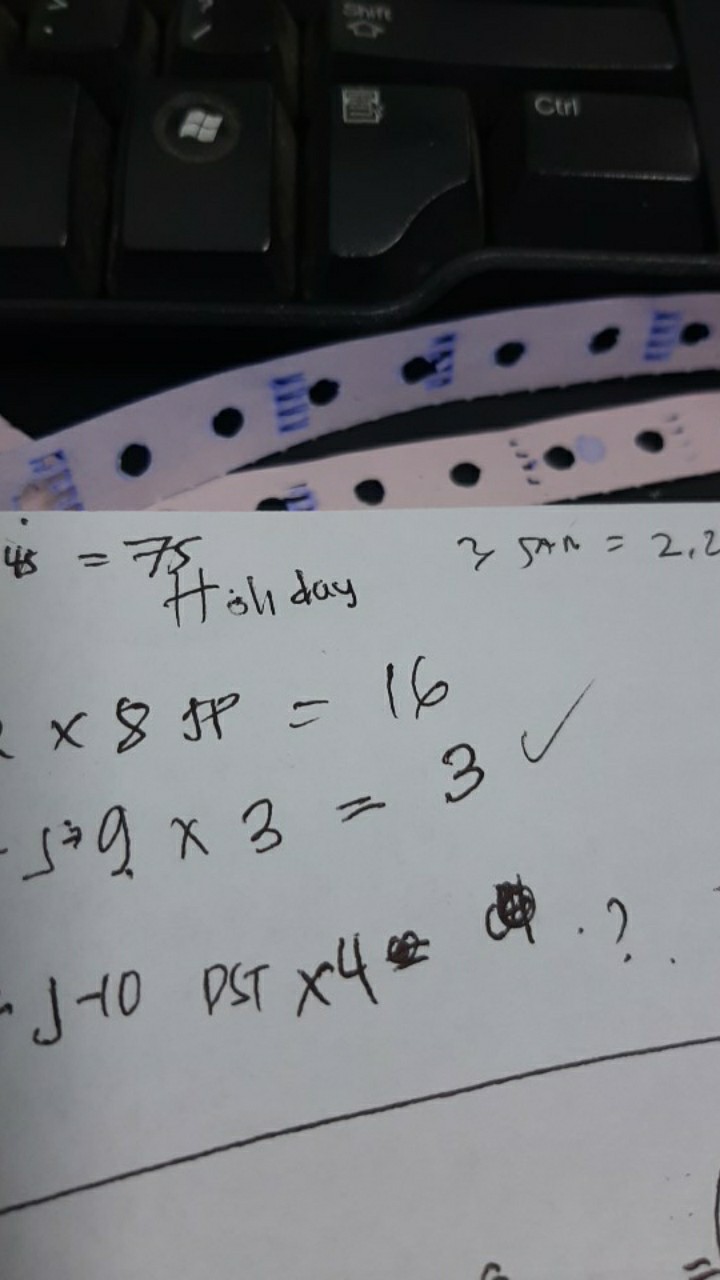 Shift
Ctrl
= 75
Holiday
= 2,2
x 8 JP = 16
x 3 = 3
J-10 DST x4 ?